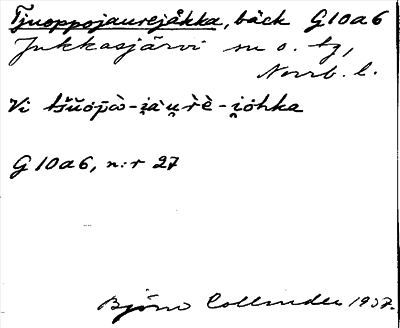 Tjuoppojaurejåkka, bäck G10a6
Jukkasjärvi sn o. tg,
Norrb. l.
Vi tšŭop̄ȧ̀-i̯àu̯rè-i̯ohka
G10a6, n:r 27
Björn Collinder 1937.